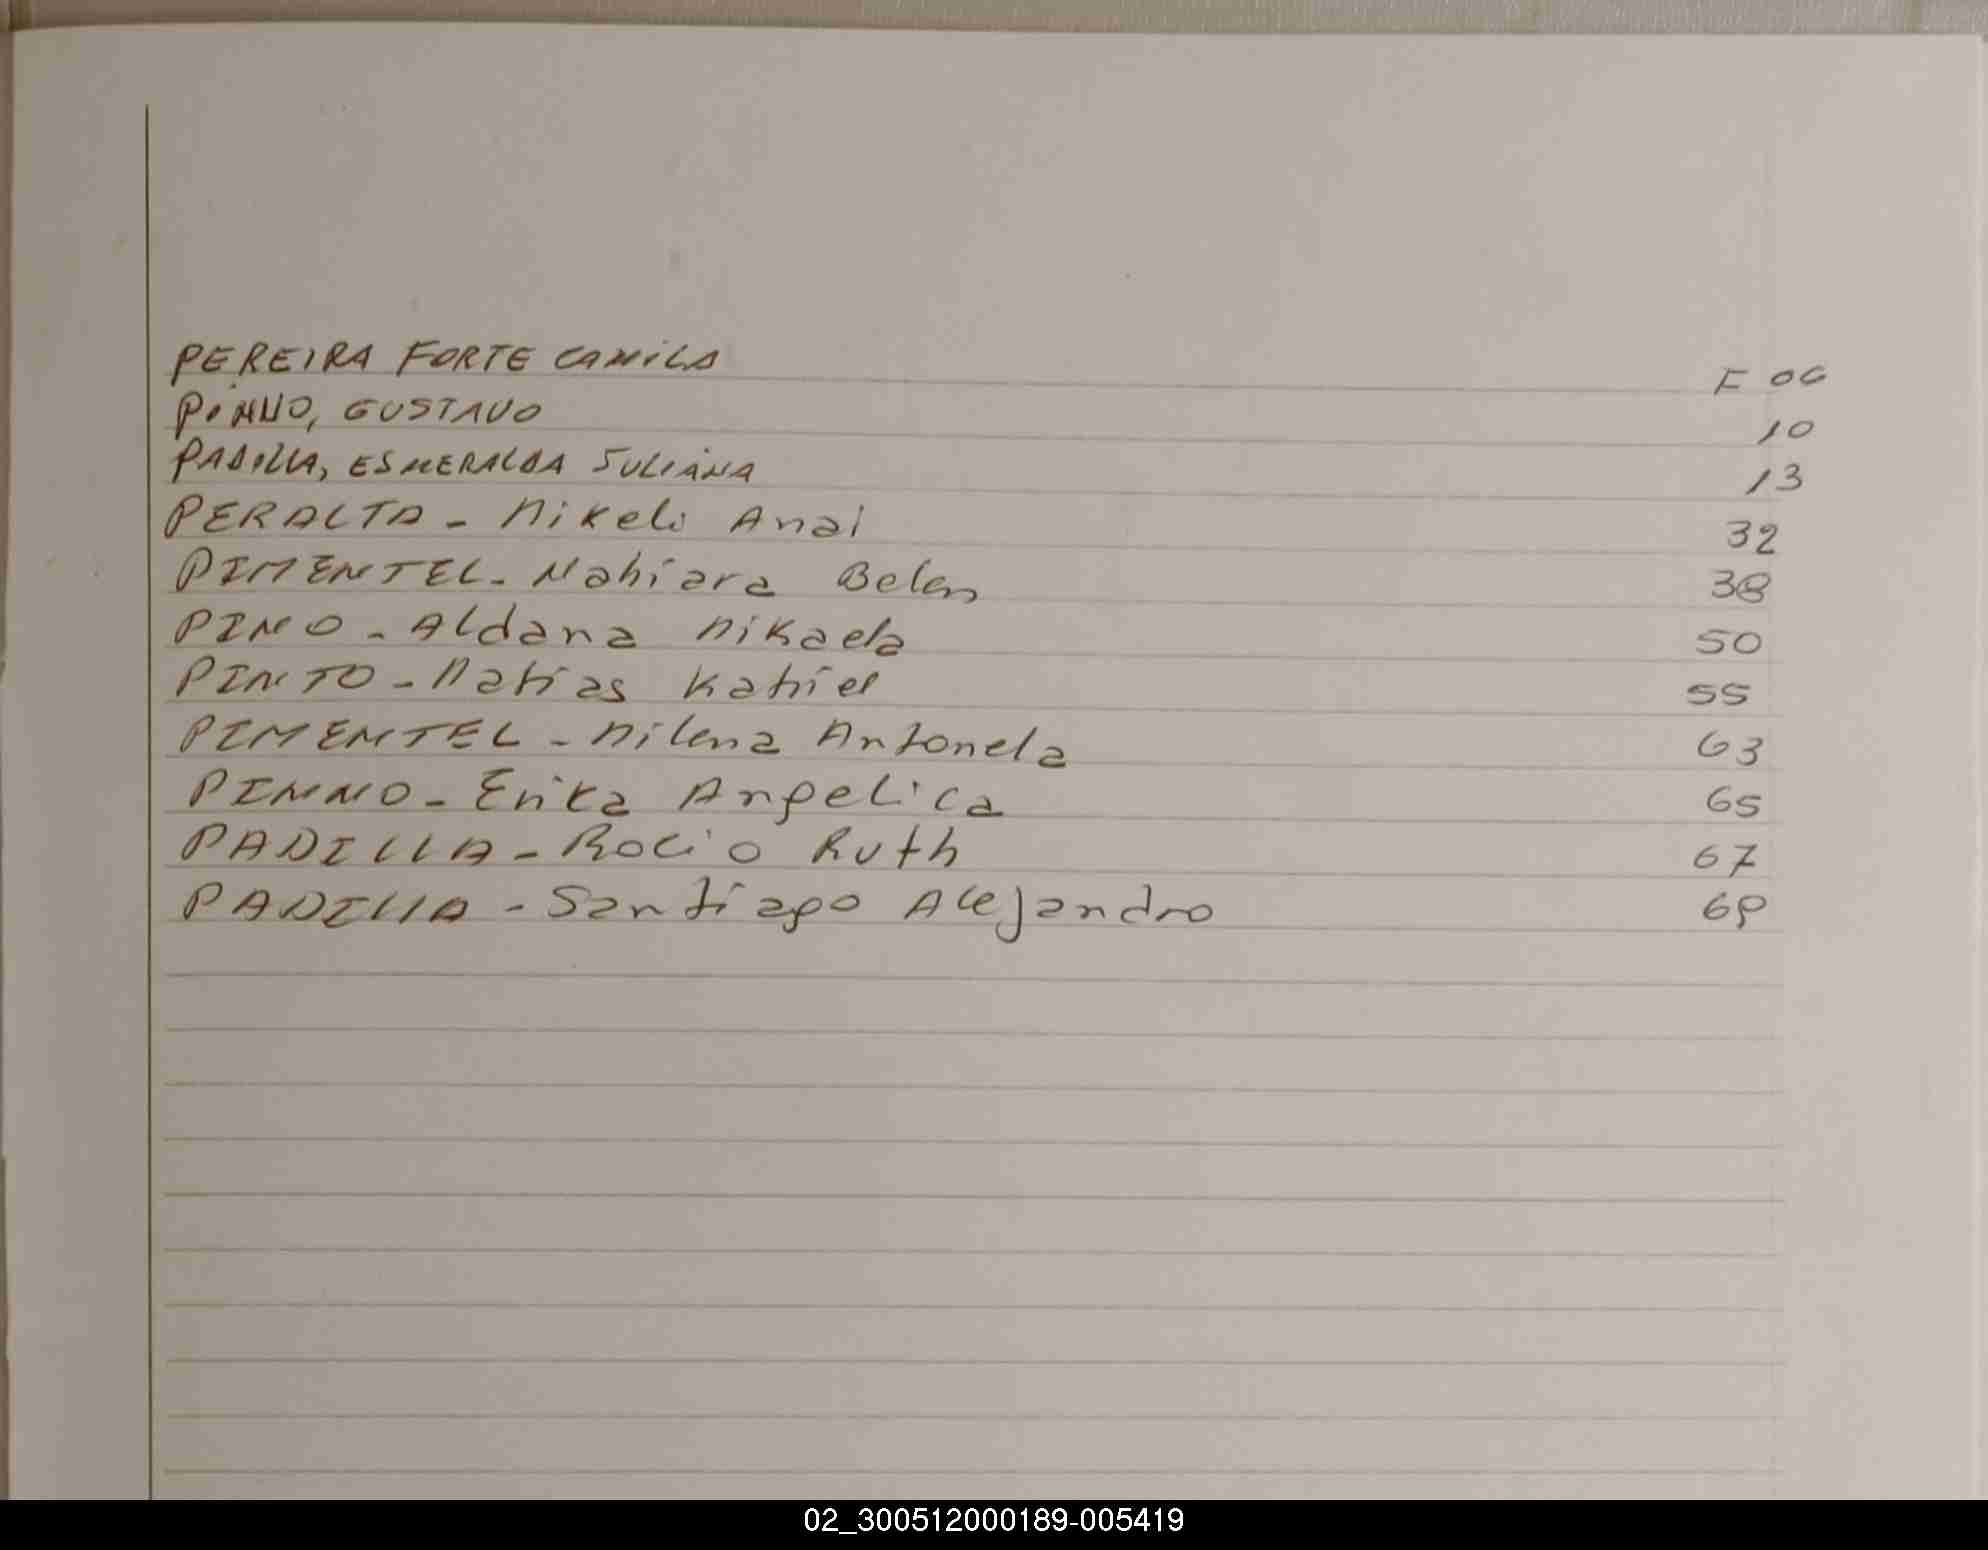 PEREIRA FORTE CAMILA F 06
PINNO, GUSTAVO 10
PADILLA, ESMERALDA JULIANA 13
PERALTA - Mikeli Anai 32
PIMENTEL - Nahiara Belen 38
PINO - Aldana Mikaela 50
PINTO - Matias Kahiel 55
PIMENTEL - Milena Antonela 63
PINNO - Erika Angelica 65
PADILLA - Rocio Ruth 67
PADILLA - Santiago Alejandro 69
02_300512000189-005419